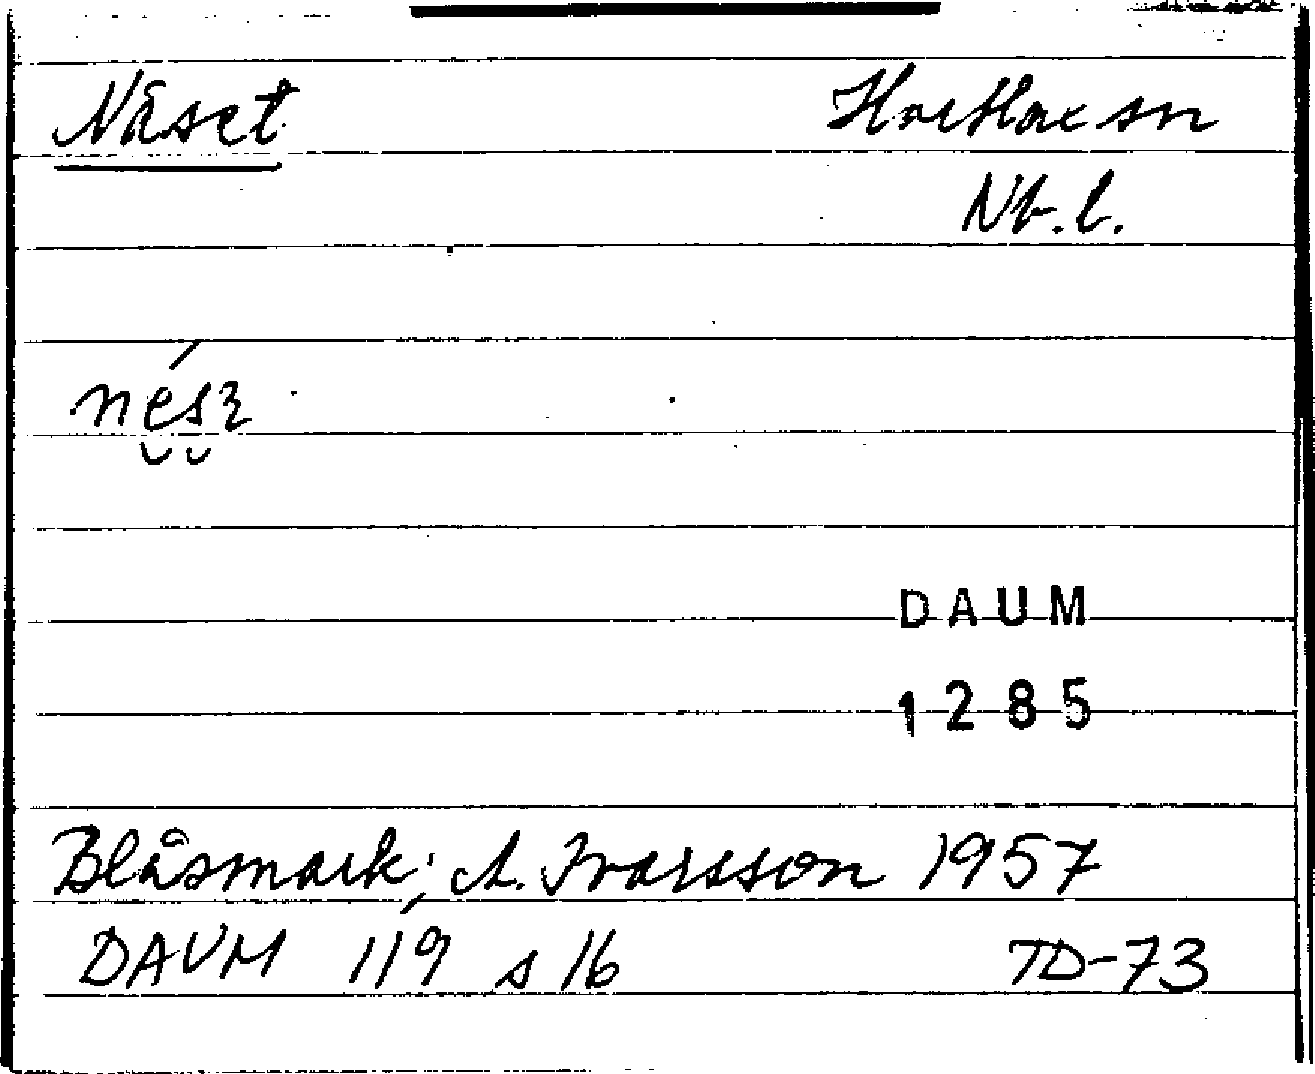 Näset Hortlax sn
Nb. l.
nésɩ
DAUM
1285
Blåsmark; A. Ivarsson 1957
DAUM 119 s 16 TD-73